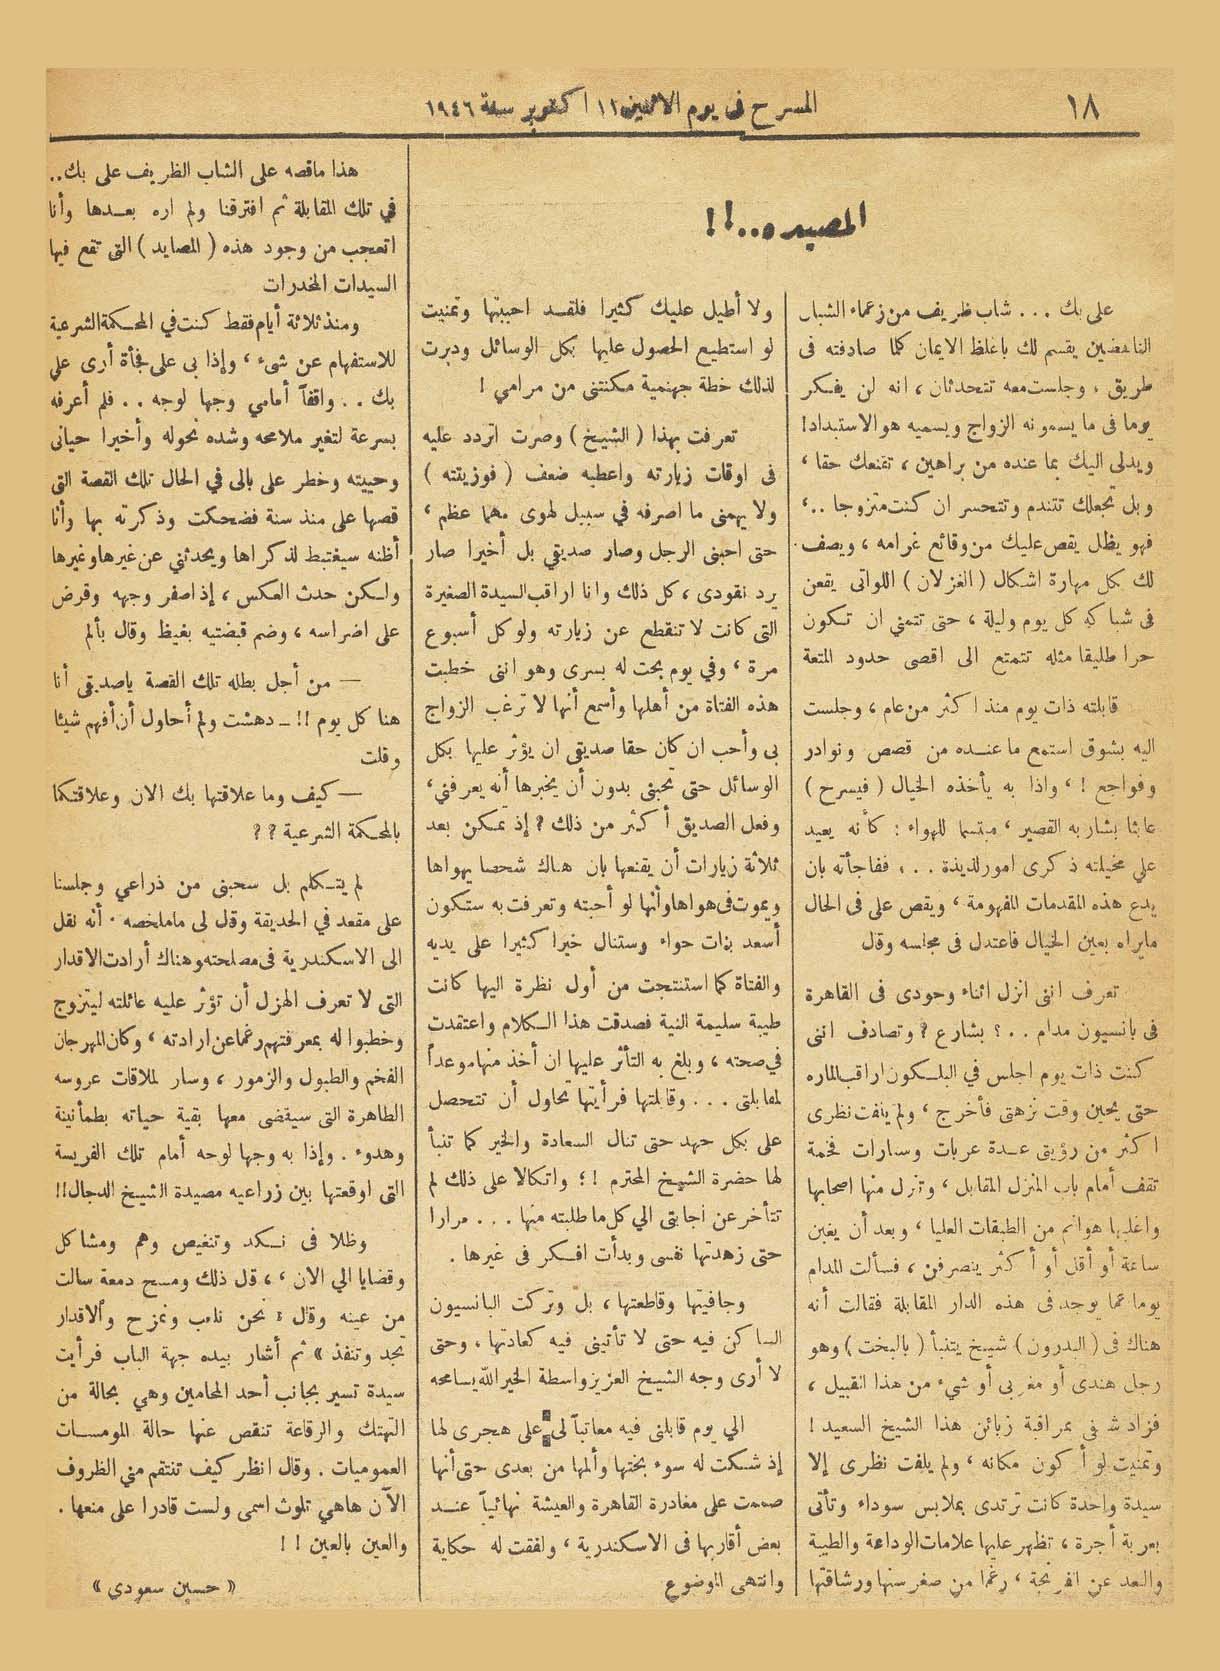 ١٨
المسرح فى يوم الاثنين ١١ اكتوبر سنة ١٩٤٦
المصيده..!!
على بك ... شاب ظريف من زعماء الشباب
الناهضين يقسم لك باغلظ الايمان كلما صادفته فى
طريق، وجلست معه تتحدثان، انه لن يفكر
يوما فى ما يسمونه الزواج ويسميه هو الاستبداد!
ويدلى اليك بما عنده من براهين، تقنعك حقا،
وبل تجعلك تتندم وتتحسر ان كنت متزوجا ..،
فهو يظل يقص عليك من وقائع غرامه، ويصف
لك بكل مهارة اشكال (الغزلان) اللواتى يقعن
فى شباكه كل يوم وليلة، حتى تتمني ان تكون
حرا طليقا مثله تتمتع الى اقصى حدود المتعة
قابلته ذات يوم منذ اكثر من عام، وجلست
اليه بشوق استمع ما عنده من قصص ونوادر
وفواجع!، واذا به يأخذه الخيال (فيسرح)
عابثا بشاربه القصير، مبتسما للهواء: كأنه يعيد
علي مخيلته ذكرى امور لذيذة ... ففاجأته بان
يدع هذه المقدمات المفهومة، ويقص على فى الحال
مايراه بعين الخيال فاعتدل فى مجلسه وقال
تعرف اننى انزل اثناء وجودى فى القاهرة
فى بانسيون مدام ..؟ بشارع؟ وتصادف اننى
كنت ذات يوم اجلس في البلكون اراقب الماره
حتى يحين وقت نزهتى فأخرج، ولم يلفت نظرى
اكثر من رؤيتى عدة عربات وسيارات فخمة
تقف أمام باب المنزل المقابل، وتنزل منها اصحابها
واغلبها هوانم من الطبقات العليا، وبعد أن يغبن
ساعة أو أقل أو أكثر ينصرفن، فسألت المدام
يوما عما يوجد فى هذه الدار المقابلة فقالت أنه
هناك فى (البدرون) شيخ يتنبأ (بالبخت) وهو
رجل هندى أو مغربى أو شىء من هذا القبيل،
فزاد شغفى بمراقبة زبائن هذا الشيخ السعيد!
وتمنيت لو أكون مكانه، ولم يلفت نظرى إلا
سيدة واحدة كانت ترتدى بملابس سوداء وتأتى
بعربة أجرة، تظهر عليها علامات الوداعة والطيبة
والبعد عن الفرنجة، رغما من صغر سنها ورشاقتها
ولا أطيل عليك كثيرا فلقد احببتها وتمنيت
لو استطيع الحصول عليها بكل الوسائل ودبرت
لذلك خطة جهنمية مكنتنى من مرامي!
تعرفت بهذا (الشيخ) وصرت اتردد عليه
فى اوقات زيارته واعطيه ضعف (فوزيتته)
ولا يهمنى ما اصرفه في سبيل لهوى مهما عظم،
حتى احبنى الرجل وصار صديقي بل أخيرا صار
يرد نقودى، كل ذلك وانا اراقب السيدة الصغيرة
التى كانت لا تنقطع عن زيارته ولو كل أسبوع
مرة، وفي يوم بحت له بسرى وهو اننى خطبت
هذه الفتاة من أهلها وأسمع أنها لا ترغب الزواج
بى وأحب ان كان حقا صديقى ان يؤثر عليها بكل
الوسائل حتى تحبنى بدون أن يخبرها أنه يعرفني،
وفعل الصديق أكثر من ذلك؟ إذ تمكن بعد
ثلاثة زيارات أن يقنعها بان هناك شخصا يهواها
ويموت فى هواها وأنها لو أحبته وتعرفت به ستكون
أسعد بنات حواء وستنال خيرا كثيرا على يديه
والفتاة كما استنتجت من أول نظرة اليها كانت
طيبة سليمة النية فصدقت هذا الكلام واعتقدت
في صحته، وبلغ به التأثر عليها ان أخذ منها موعداً
لمقابلتى ... وقابلتها فرأيتها تحاول أن تتحصل
على بكل جهد حتى تنال السعادة والخير كما تنبأ
لها حضرة الشيخ المحترم!؛ واتكالا على ذلك لم
تتأخر عن اجابتى الي كل ما طلبته منها ... مرارا
حتى زهدتها نفسى وبدأت افكر فى غيرها.
وجافيتها وقاطعتها، بل وتركت البانسيون
الساكن فيه حتى لا تأتينى فيه كعادتها، وحتى
لا أرى وجه الشيخ العزيز واسطة الخير الله يسامحه
الي يوم قابلنى فيه معاتباً لى على هجرى لها
إذ شكت له سوء بختها وألمها من بعدى حتى أنها
صممت على مغادرة القاهرة والعيشة نهائياً عند
بعض أقاربها فى الاسكندرية، ولفقت له حكاية
وانتهى الموضوع
هذا ماقصه على الشاب الظريف على بك..
في تلك المقابلة ثم افترقنا ولم اره بعدها وأنا
اتعجب من وجود هذه (المصايد) التى تقع فيها
السيدات المخدرات
ومنذ ثلاثة أيام فقط كنت في المحكمة الشرعية
للاستفهام عن شىء، وإذا بى على فجأة أرى علي
بك .. واقفاً أمامي وجها لوجه .. فلم أعرفه
بسرعة لتغير ملامحه وشده نحوله وأخيرا حيانى
وحييته وخطر على بالى في الحال تلك القصة التى
قصها على منذ سنة فضحكت وذكرته بها وأنا
أظنه سيغتبط لذكراها ويحدثني عن غيرها وغيرها
ولكن حدث العكس، إذ اصفر وجهه وقرض
على اضراسه، وضم قبضتيه بغيظ وقال بألم
— من أجل بطله تلك القصة ياصديقى أنا
هنا كل يوم!! — دهشت ولم أحاول أن أفهم شيئا
وقلت
— كيف وما علاقتها بك الان وعلاقتكما
بالمحكمة الشرعية؟؟
لم يتكلم بل سحبنى من ذراعي وجلسنا
على مقعد في الحديقة وقال لى ماملخصه. أنه نقل
الى الاسكندرية فى مصلحته وهناك أرادت الاقدار
التى لا تعرف الهزل أن تؤثر عليه عائلته ليتزوج
وخطبوا له بمعرفتهم رغما عن ارادته، وكان المهرجان
الفخم والطبول والزمور، وسار لملاقات عروسه
الطاهرة التى سيقضى معها بقية حياته بطمأنينة
وهدوء. وإذا به وجها لوجه أمام تلك الفريسة
التى اوقعتها بين زراعيه مصيدة الشيخ الدجال!!
وظلا فى نكد وتنغيص وهم ومشاكل
وقضايا الي الان،، قال ذلك ومسح دمعة سالت
من عينه وقال: نحن نلعب ونمزح والاقدار
تجد وتنفذ» ثم أشار بيده جهة الباب فرأيت
سيدة تسير بجانب أحد المحامين وهي بحالة من
التهتك والرقاعة تنقص عنها حالة المومسات
العموميات. وقال انظر كيف تنتقم مني الظروف
الآن هاهي تلوث اسمى ولست قادرا على منعها.
والعين بالعين!!
«حسين سعودي»